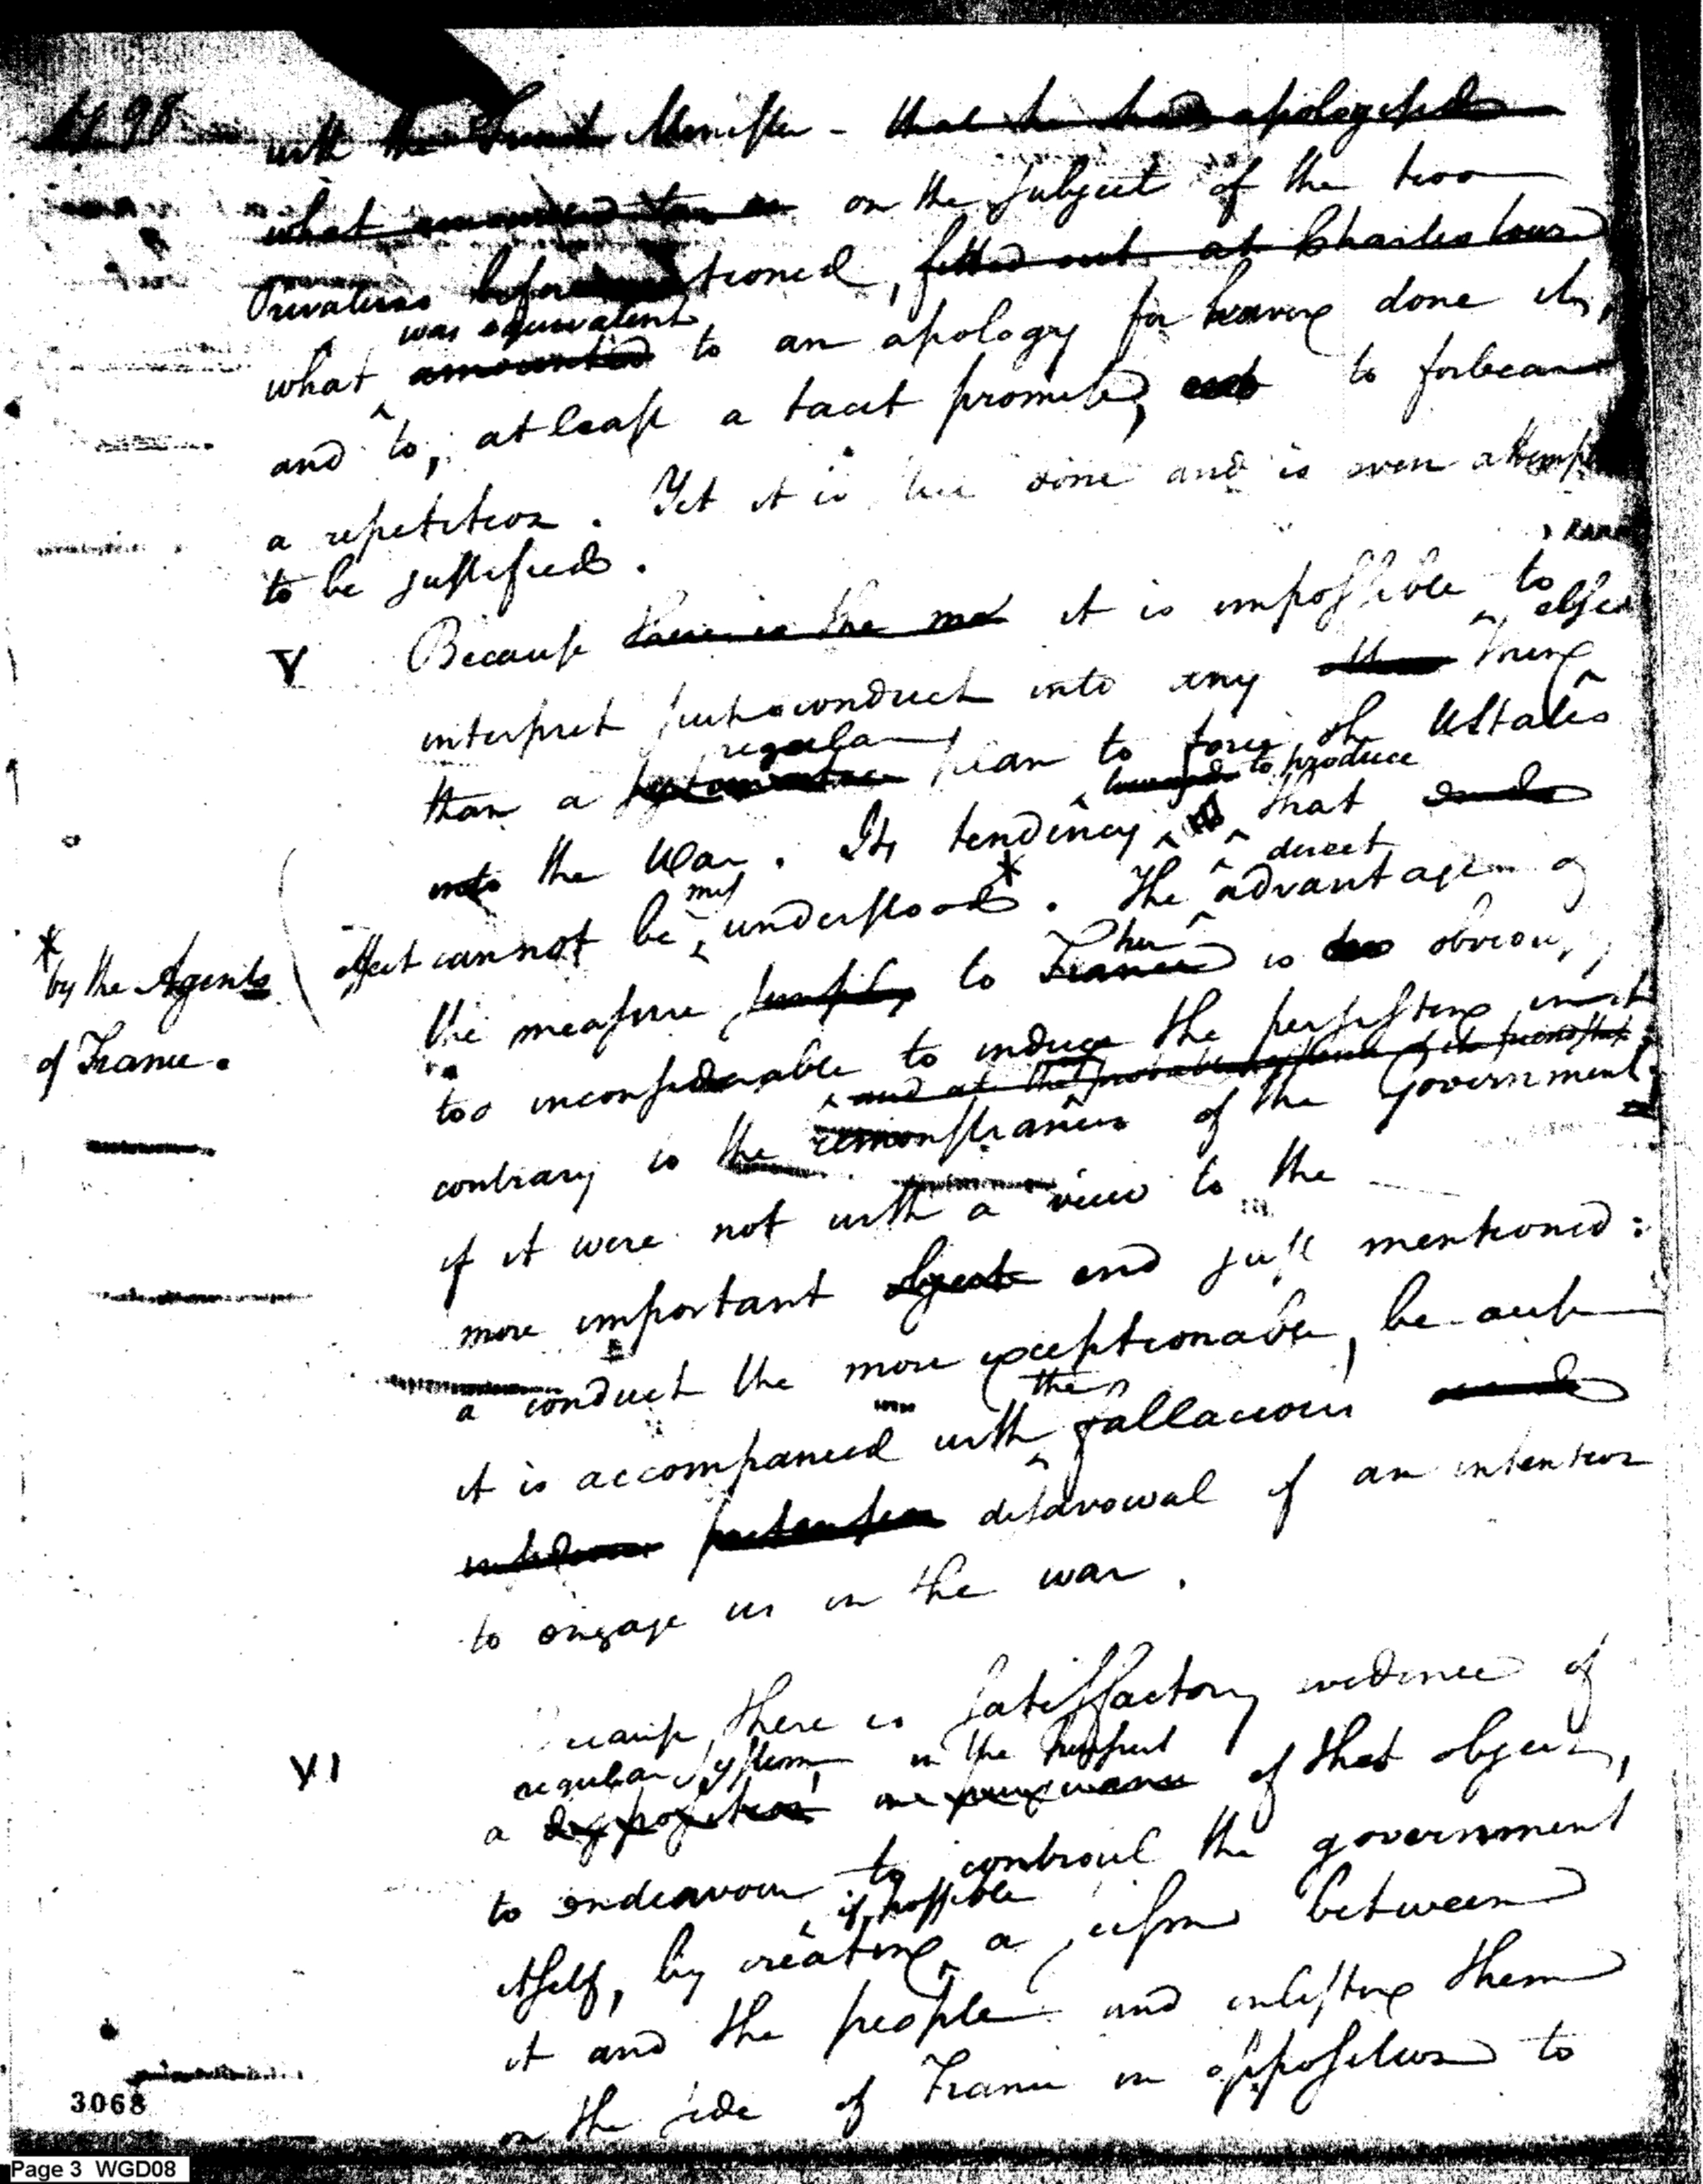 with the French Minister - that he had apologised
what amounted to an on the subject of the two
Privateers before tioned, fitted out at Charles town
was equivalent
what amounted to an apology for having done it,
and to, at least a tacit promise, to forbear
a repetition. Yet it is done and is even attemp
to be justified.
V Because there is the mo it is impossible to
elsed
interpret such conduct into any thing
regular
than a plan to force the UStates
to produce
into the War. Its tendency that
mis direct
effect cannot be understood*. The advantage of
* by the Agents
of France.
her
the measure to France is obviously
too inconsiderable to induce the persisting in it
and at the probable of its friendship
contrary to the remonstrances of the Government
if it were not with a view to the
more important object end just mentioned:
a conduct the more exceptionable, because
the
it is accompanied with fallacious
disavowal of an intention
to engage us in the war.
VI Because there is satisfactory evidence of
regular system, in the pursuit
a disposition in pursuance of that object,
to endeavour to controul the government
if possible
itself, by creating a scism between
it and the people and enlisting them
on the side of France in opposition to
3068
Page 3 WGD08